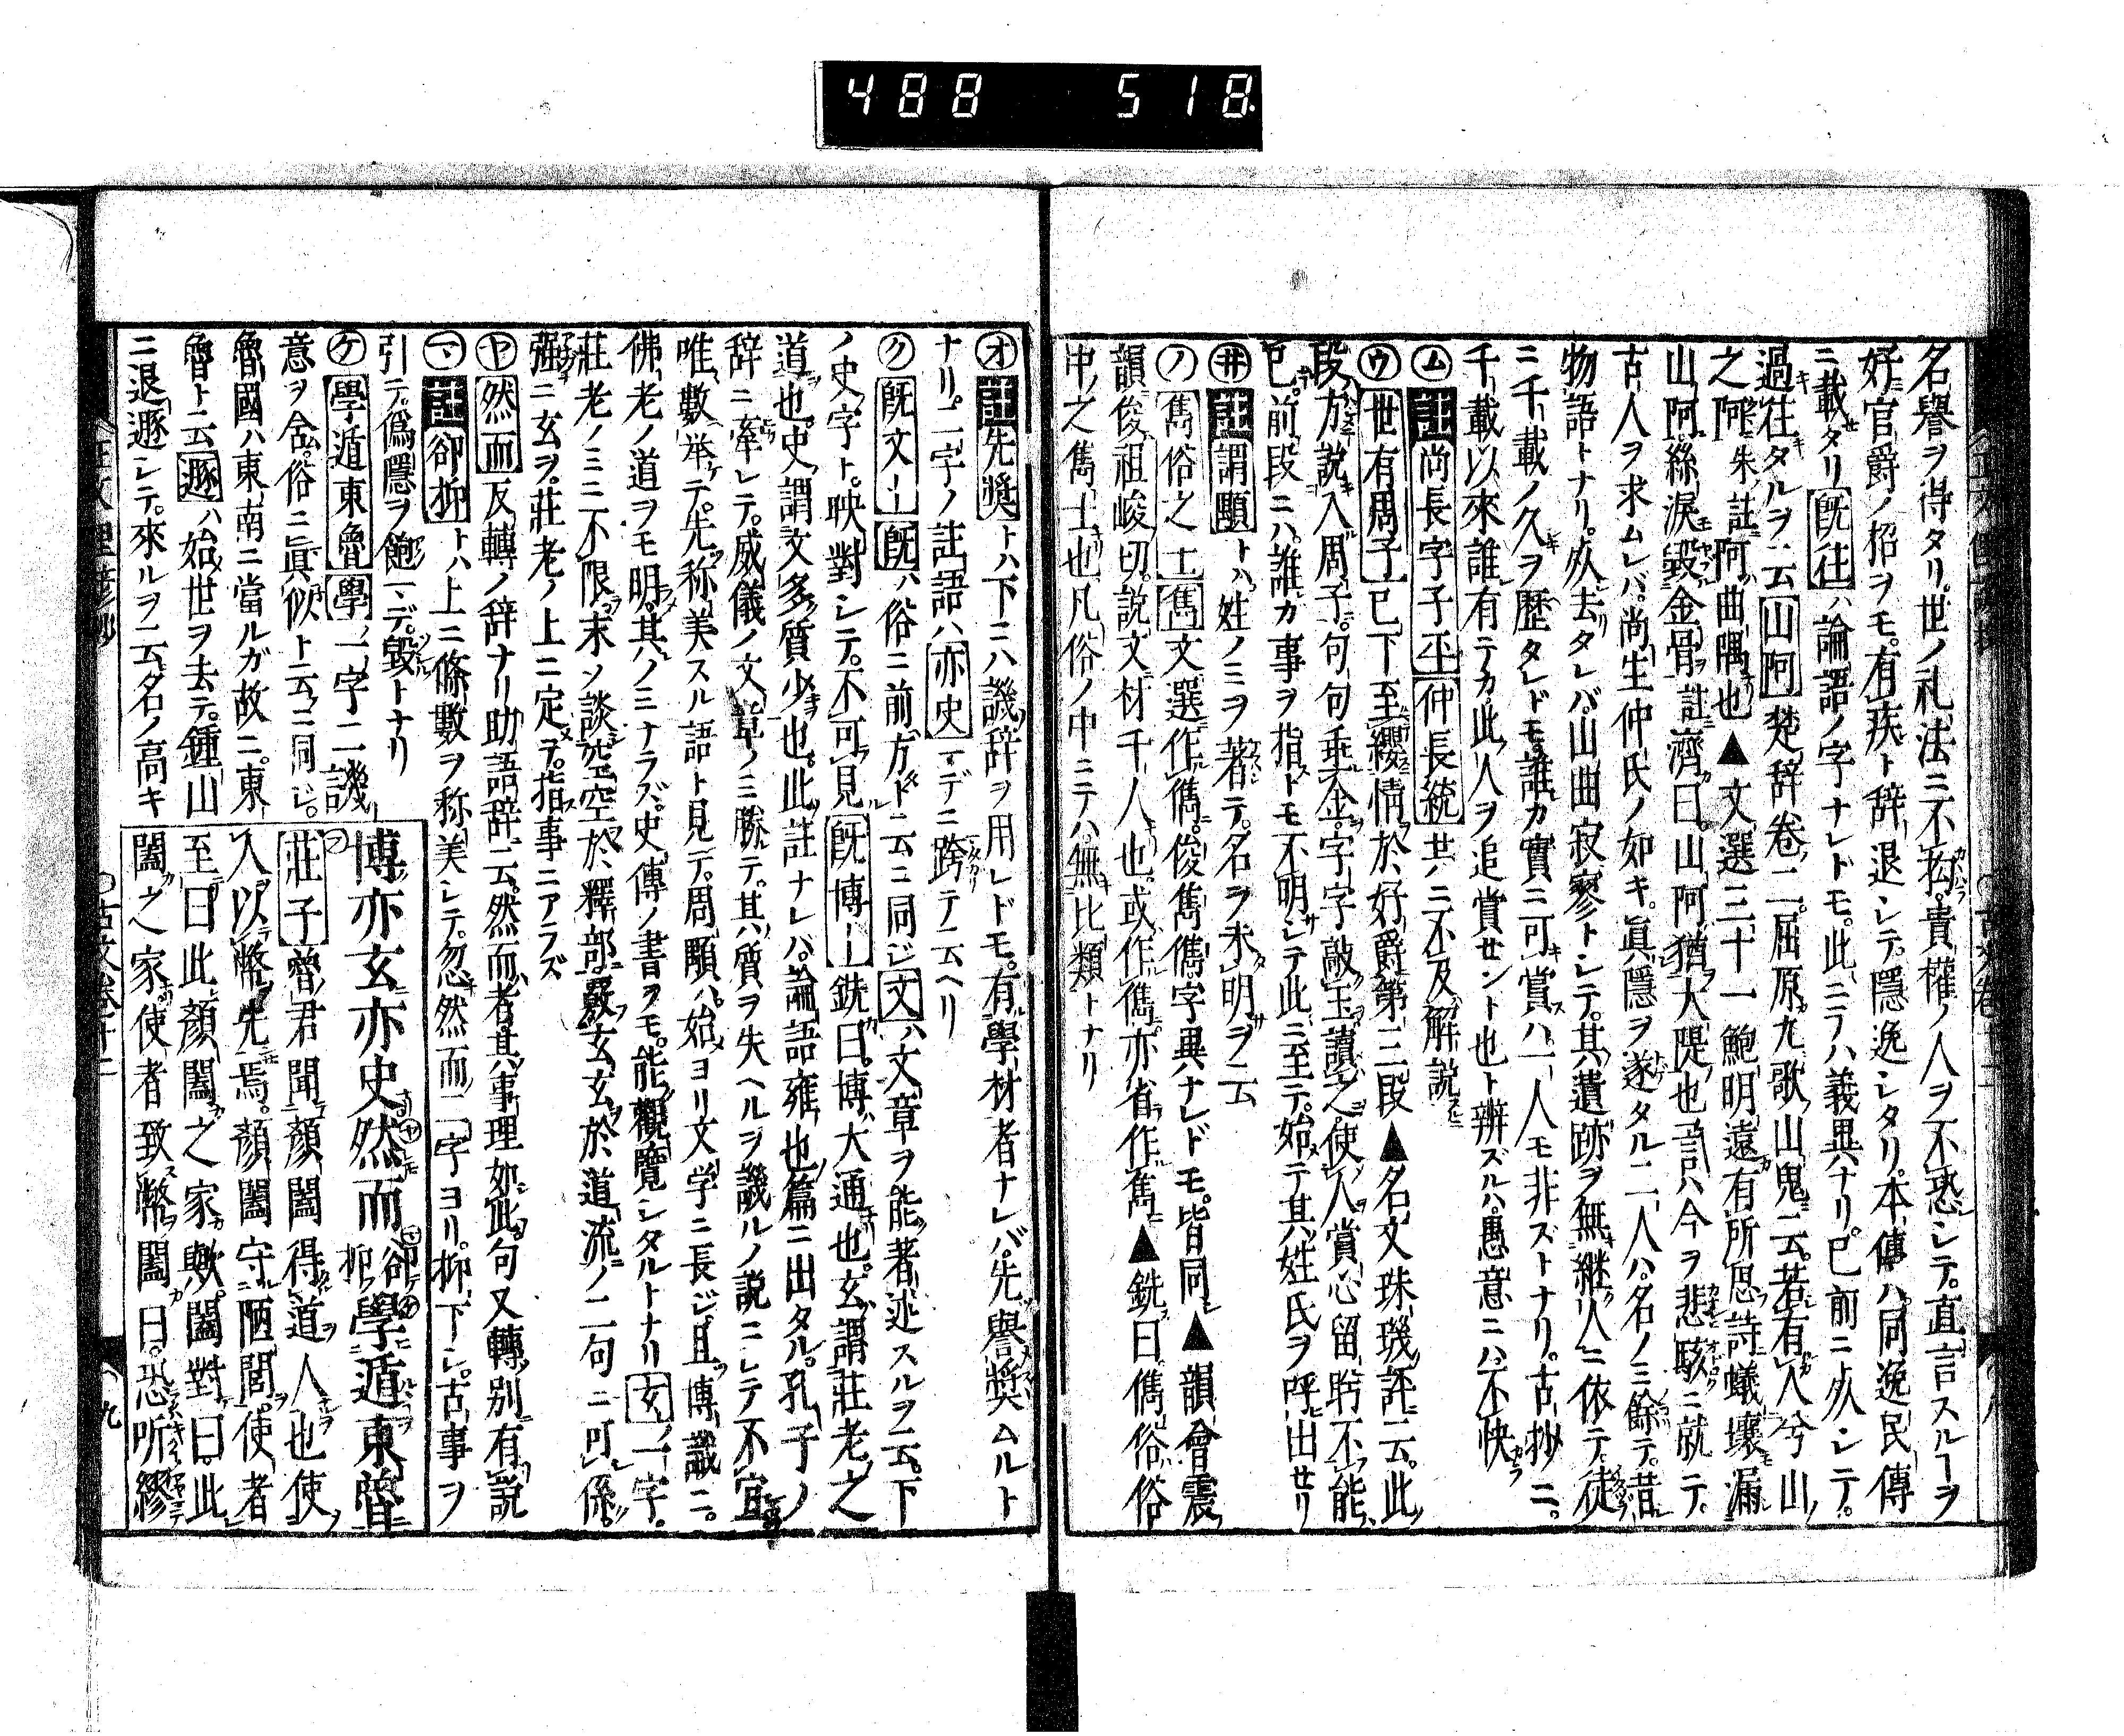 488 518
名譽ヲ得タリ。世ノ礼法ニ不拘。貴權ノ人ヲ不恐シテ。直言スルヿヲ
好。官爵ノ招ヲモ。有疾ト辞退シテ。隱逸シタリ。本傳ハ同逸民傳
ニ載タリ既往ハ論語ノ字ナレドモ。此ニテハ義異ナリ。已前ニ久シテ。
過往タルヲ云山阿楚辞卷二。屈原九歌山鬼云。若有人兮山
之阿。朱註阿曲隅也▲文選三十一鮑明遠有所思詩蟻壤漏
山阿絲淚毀金骨註濟曰。山阿猶大隄也言ハ今ヲ悲駭ニ就テ。
古人ヲ求ムレバ。尚生仲氏ノ如キ。眞隱ヲ遂タル二人ハ。名ノミ餘テ。昔
物語トナリ。久去タレバ。山曲寂寥トシテ。其遺跡ヲ無継人ニ依テ。徒
ニ千載ノ久ヲ歴タレドモ。誰カ實ニ可賞ハ一人モ非ズトナリ。古抄ニ。
千載以來誰有テカ此人ヲ追賞せント也ト辨ズルハ。愚意ニハ不快
ム註尚長字子平仲長統共ニ不及解説
ウ世有周子已下至纓情於好爵第三段▲名文珠璣評云。此
段方說入周子。句句垂金。字字敲玉讀之使人賞心留眄不能
已。前段ニハ。誰カ事ヲ指トモ不明シテ此ニ至テ。始テ其姓氏ヲ呼出せリ
井註謂顒トハ。姓ノミヲ著テ。名ヲ未明ヲ云
ノ雋俗之士雋文選作儁。俊雋儁字異ナレドモ。皆同▲韻會震
韻俊祖峻切。說文材千人也。或作儁。亦省作雋▲銑曰。儁俗俗
中之雋士也凡俗ノ中ニテハ。無比類トナリ
オ註先奬トハ下ニハ譏辞ヲ用レドモ。有學材者ナレバ。先譽奬ムルト
ナリ。二字ノ註語ハ亦史マデニ跨テ云ヘリ
ク既文上既ハ俗ニ前方ト云ニ同ジ文ハ文章ヲ能著述スルヲ云。下
ノ史字ト。映對シテ。不可見既博上銑曰。博大通也。玄謂莊老之
道也。史謂文多質少也。此註ナレバ。論語雍也篇ニ出タル。孔子ノ
辞ニ牽レテ。威儀ノ文章ノミ勝テ。其質ヲ失ヘルヲ譏ルノ説ニシテ不宜
唯數挙テ。先称美スル語ト見テ。周顒ハ。始ヨリ文学ニ長ジ。且博識ニ。
佛老ノ道ヲモ明。其ノミナラズ。史傳ノ書ヲモ。能觀覽シタルトナリ玄ノ一字。
莊老ノミニ不限。末ノ談空空於釋部覈玄玄於道流ノ二句ニ可係。
强ニ玄ヲ。莊老ノ上ニ定テ。指事ニアラズ
ヤ然而反轉ノ辞ナリ助語辞云。然而者。其事理如此。句又轉別有說
マ註卻抑トハ上ニ條數ヲ称美シテ。忽然而二字ヨリ。抑下シ。古事ヲ
引テ。爲隱ヲ飽マデ。毀トナリ
ケ學遁東魯學ノ一字二譏
意ヲ含。俗ニ眞似ト云ニ同ジ。
魯國ハ東南ニ當ルガ故ニ。東
魯ト云遯ハ始世ヲ去テ。鍾山
ニ退遯シテ。來ルヲ云。名ノ高キ
博亦玄亦史然而卻抑學遁東魯
莊子魯君聞顏闔得道人也使
人以幣先焉。顏闔守陋閭。使者
至曰此顏闔之家歟。闔對曰。此
闔之家使者致幣闔曰。恐听繆
古文卷十二
九